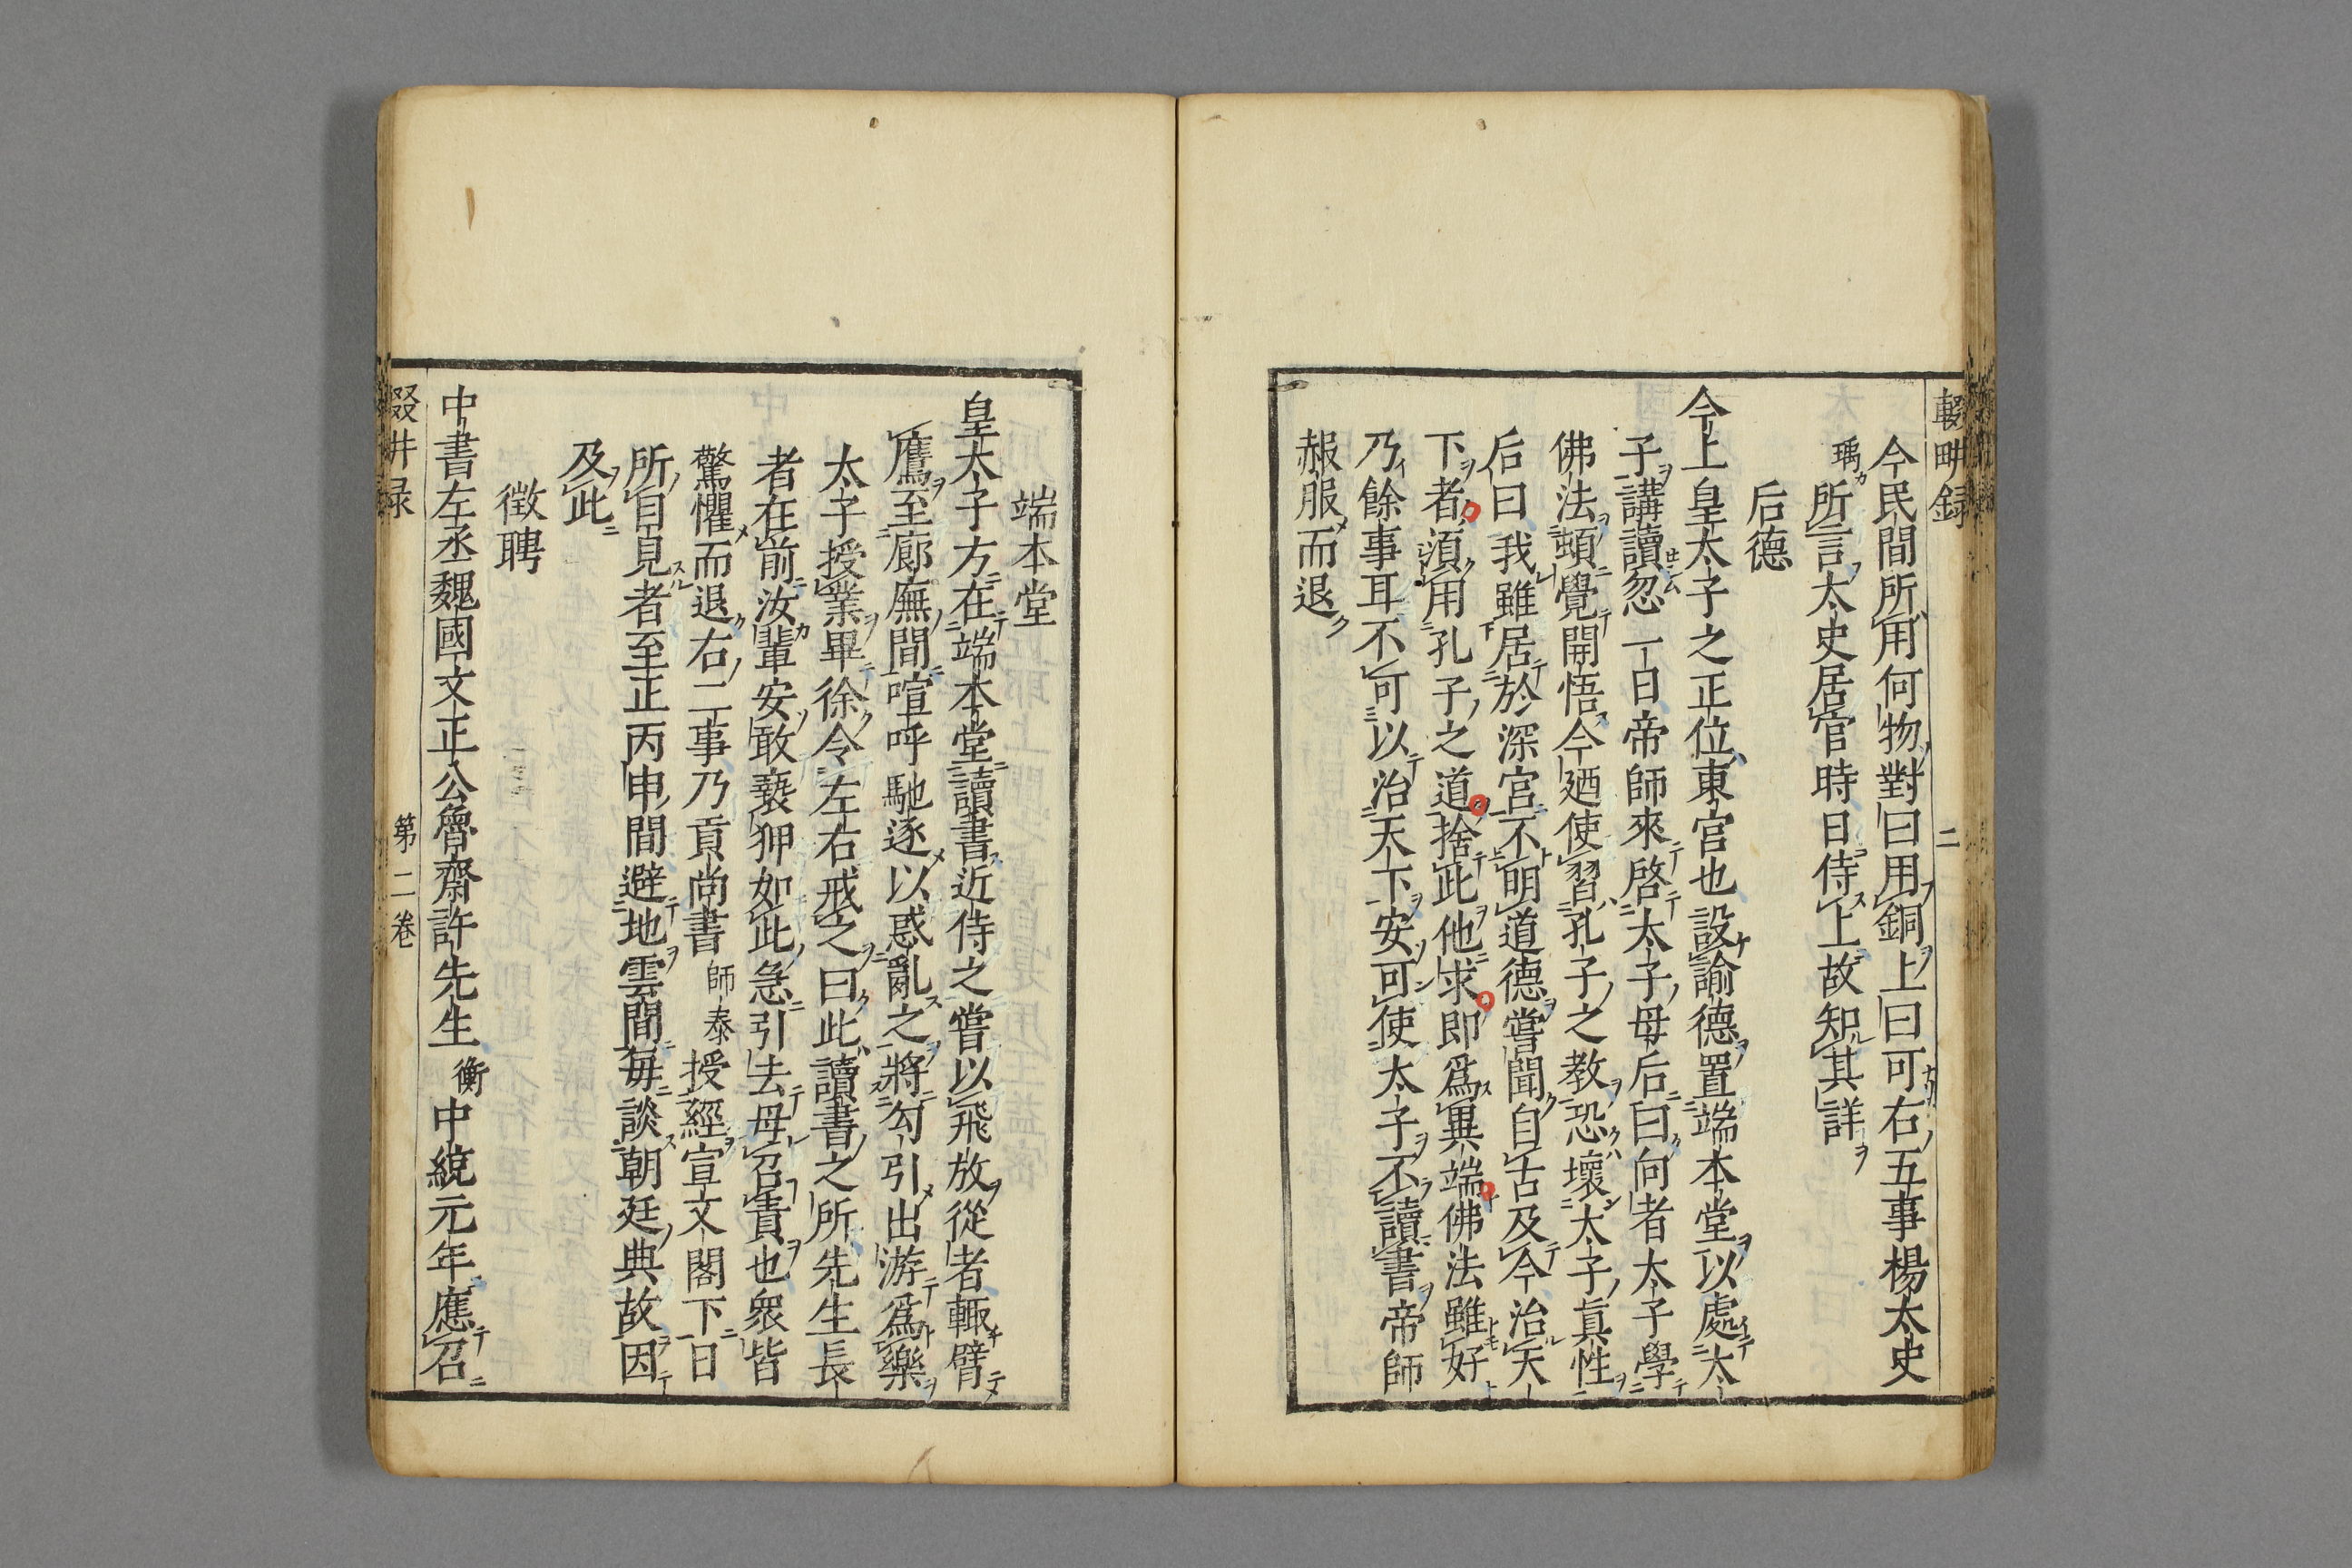 輟畊録
二
今民間所用何物對曰用銅上曰可右五事楊太史
瑀所言太史居官時日侍上故知其詳
后德
今上皇太子之正位東宮也設諭德置端本堂以處太
子講讀忽一日帝師來啓太子母后曰向者太子學
佛法頓覺開悟今廼使習孔子之教恐壞太子眞性
后曰我雖居於深宮不明道德嘗聞自古及今治天
下者須用孔子之道捨此他求即爲異端佛法雖好
乃餘事耳不可以治天下安可使太子不讀書帝師
赧服而退
端本堂
皇太子方在端本堂讀書近侍之嘗以飛放從者輙臂
鷹至廊廡間喧呼馳逐以惑亂之將勾引出游爲樂
太子授業畢徐令左右戒之曰此讀書之所先生長
者在前汝輩安敢褻狎如此急引去毋召責也衆皆
驚懼而退右二事乃貢尚書師泰授經宣文閣下日
所自見者至正丙申間避地雲間毎談朝廷典故因
及此
徴聘
中書左丞魏國文正公魯齋許先生衡中統元年應召
輟畊録
第二卷